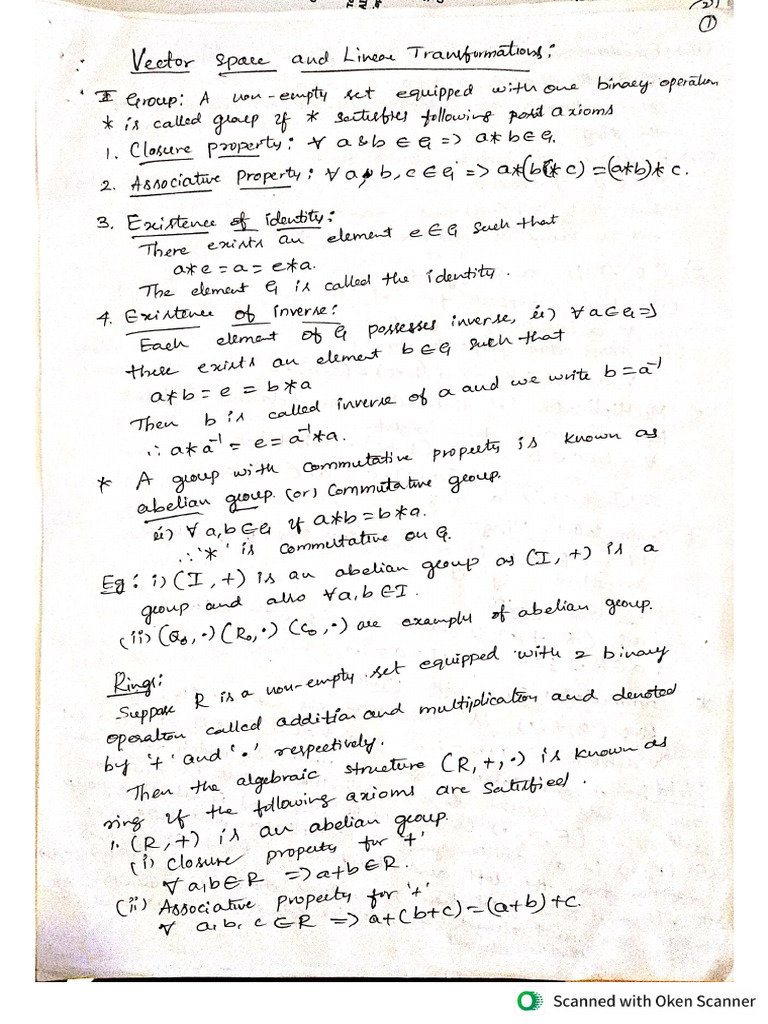 ①
Vector space and Linear Transformations:
Group: A non-empty set equipped with one binary operation
* is called group if * satisfies following axioms
1. Closure property: ∀ a & b ∈ G => a*b ∈ G.
2. Associative Property: ∀ a, b, c ∈ G => a*(b * c) = (a*b)* c.
3. Existence of identity:
There exists an element e ∈ G such that
a*e = a = e*a.
The element G is called the identity.
4. Existence of inverse:
Each element of G possesses inverse, ii) ∀ a ∈ G =>
there exists an element b ∈ G such that
a*b = e = b*a
Then b is called inverse of a and we write b = a⁻¹
∴ a* a⁻¹ = e = a⁻¹*a.
* A group with commutative property is known as
abelian group. (or) commutative group.
ii) ∀ a,b ∈ G if a*b = b*a.
∴ '*' is commutative on G.
Eg: i) (I, +) is an abelian group as (I, +) is a
group and also ∀ a,b ∈ I.
(ii) (Q₀, ·) (R₀, ·) (C₀, ·) are example of abelian group.
Rings:
Suppose R is a non-empty set equipped with 2 binary
operation called addition and multiplication and denoted
by '+' and '·' respectively.
Then the algebraic structure (R, +, ·) is known as
ring if the following axioms are satisfied.
1. (R, +) is an abelian group.
(i) Closure property for '+'
∀ a,b ∈ R => a+b ∈ R.
(ii) Associative property for '+'
∀ a, b, c ∈ R => a+(b+c) = (a+b)+c.
Scanned with Oken Scanner